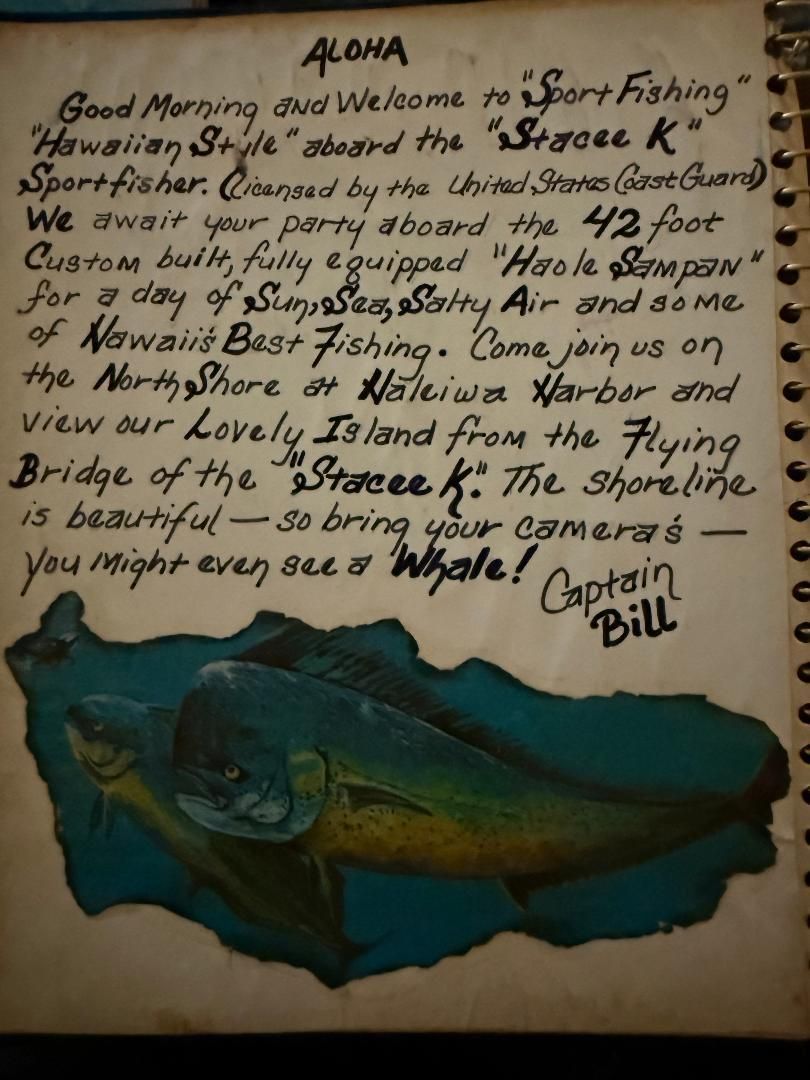 ALOHA
Good Morning and Welcome to "Sport Fishing"
"Hawaiian Style" aboard the "Stacee K"
Sportfisher. (Licensed by the United States Coast Guard)
We await your party aboard the 42 foot
Custom built, fully equipped "Haole Sampan"
for a day of Sun, Sea, Salty Air and some
of Hawaii's Best Fishing. Come join us on
the North Shore at Haleiwa Harbor and
view our Lovely Island from the Flying
Bridge of the "Stacee K". The shoreline
is beautiful — so bring your camera's —
you might even see a Whale!
Captain
Bill